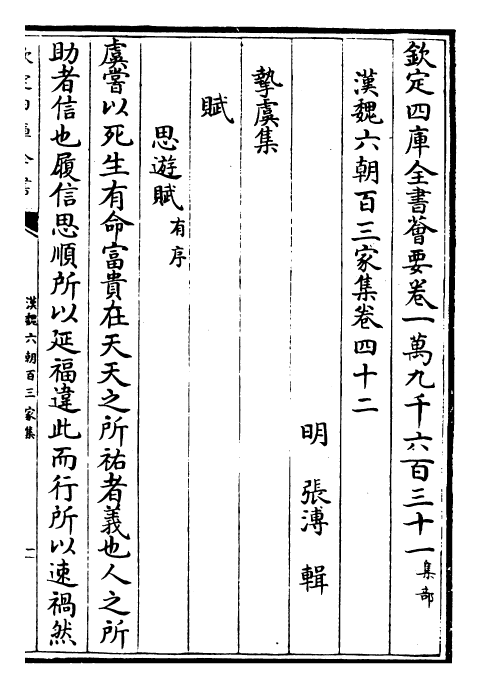 欽定四庫全書薈要卷一萬九千六百三十一集部
漢魏六朝百三家集卷四十二
明 張溥 輯
摯虞集
賦
思遊賦有序
虞嘗以死生有命富貴在天天之所祐者義也人之所
助者信也履信思順所以延福違此而行所以速禍然
漢魏六朝百三家集
一